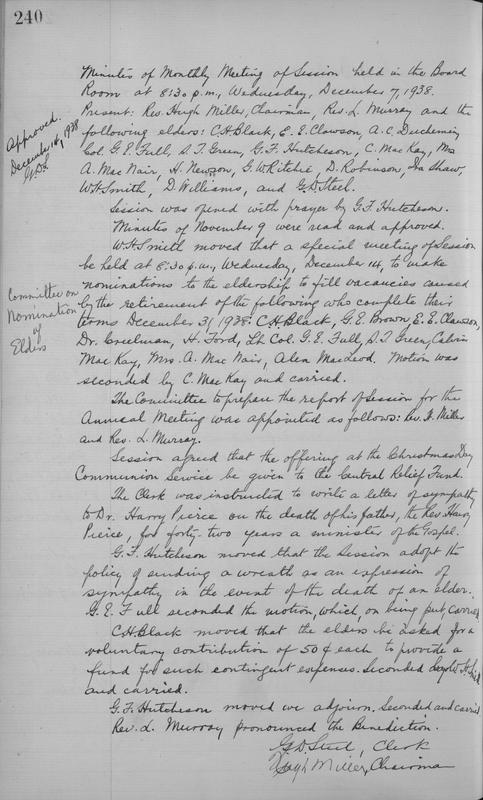 240
Minutes of Monthly Meeting of Session held in the Board
Room at 8:30 p.m., Wednesday, December 7, 1938.
Present: Rev. Hugh Miller, Chairman, Rev. L. Murray and the
following elders: C.H. Black, E.E. Clawson, A.C. Duchemin,
Col. G.E. Full, S.T. Green, G.F. Hutcheson, C. MacKay, Mrs
A. MacNair, H. Newson, G.W. Ritchie, D. Robinson, Ira Shaw,
W.H. Smith, D. Williams, and G.D. Steel.
Approved.
December 14, 1938
G.D.S.
Session was opened with prayer by G.F. Hutcheson.
Minutes of November 9 were read and approved.
W.H. Smith moved that a special meeting of Session
be held at 8:30 p.m., Wednesday, December 14, to make
nominations to the eldership to fill vacancies caused
by the retirement of the following who complete their
terms December 31, 1938: C.H. Black, G.E. Brown, E.E. Clawson,
Dr. Creelman, H. Ford, Lt Col. G.E. Full, S.T. Green, Calvin
MacKay, Mrs. A. MacNair, Alex MacLeod. Motion was
seconded by C. MacKay and carried.
Committee on
Nomination
of
Elders
The Committee to prepare the report of Session for the
Annual Meeting was appointed as follows: Rev. H. Miller
and Rev. L. Murray.
Session agreed that the offering at the Christmas Day
Communion Service be given to the Central Relief Fund.
The Clerk was instructed to write a letter of sympathy
to Dr. Harry Pierce on the death of his father, the Rev. Harry
Pierce, for forty-two years a minister of the Gospel.
G.F. Hutcheson moved that the Session adopt the
policy of sending a wreath as an expression of
sympathy in the event of the death of an elder.
G.E. Full seconded the motion, which, on being put, carried.
C.H. Black moved that the elders be asked for a
voluntary contribution of 50¢ each to provide a
fund for such contingent expenses. Seconded by W.H. Smith
and carried.
G.F. Hutcheson moved we adjourn. Seconded and carried
Rev. L. Murray pronounced the Benediction.
G.D. Steel, Clerk
Hugh Miller, Chairman